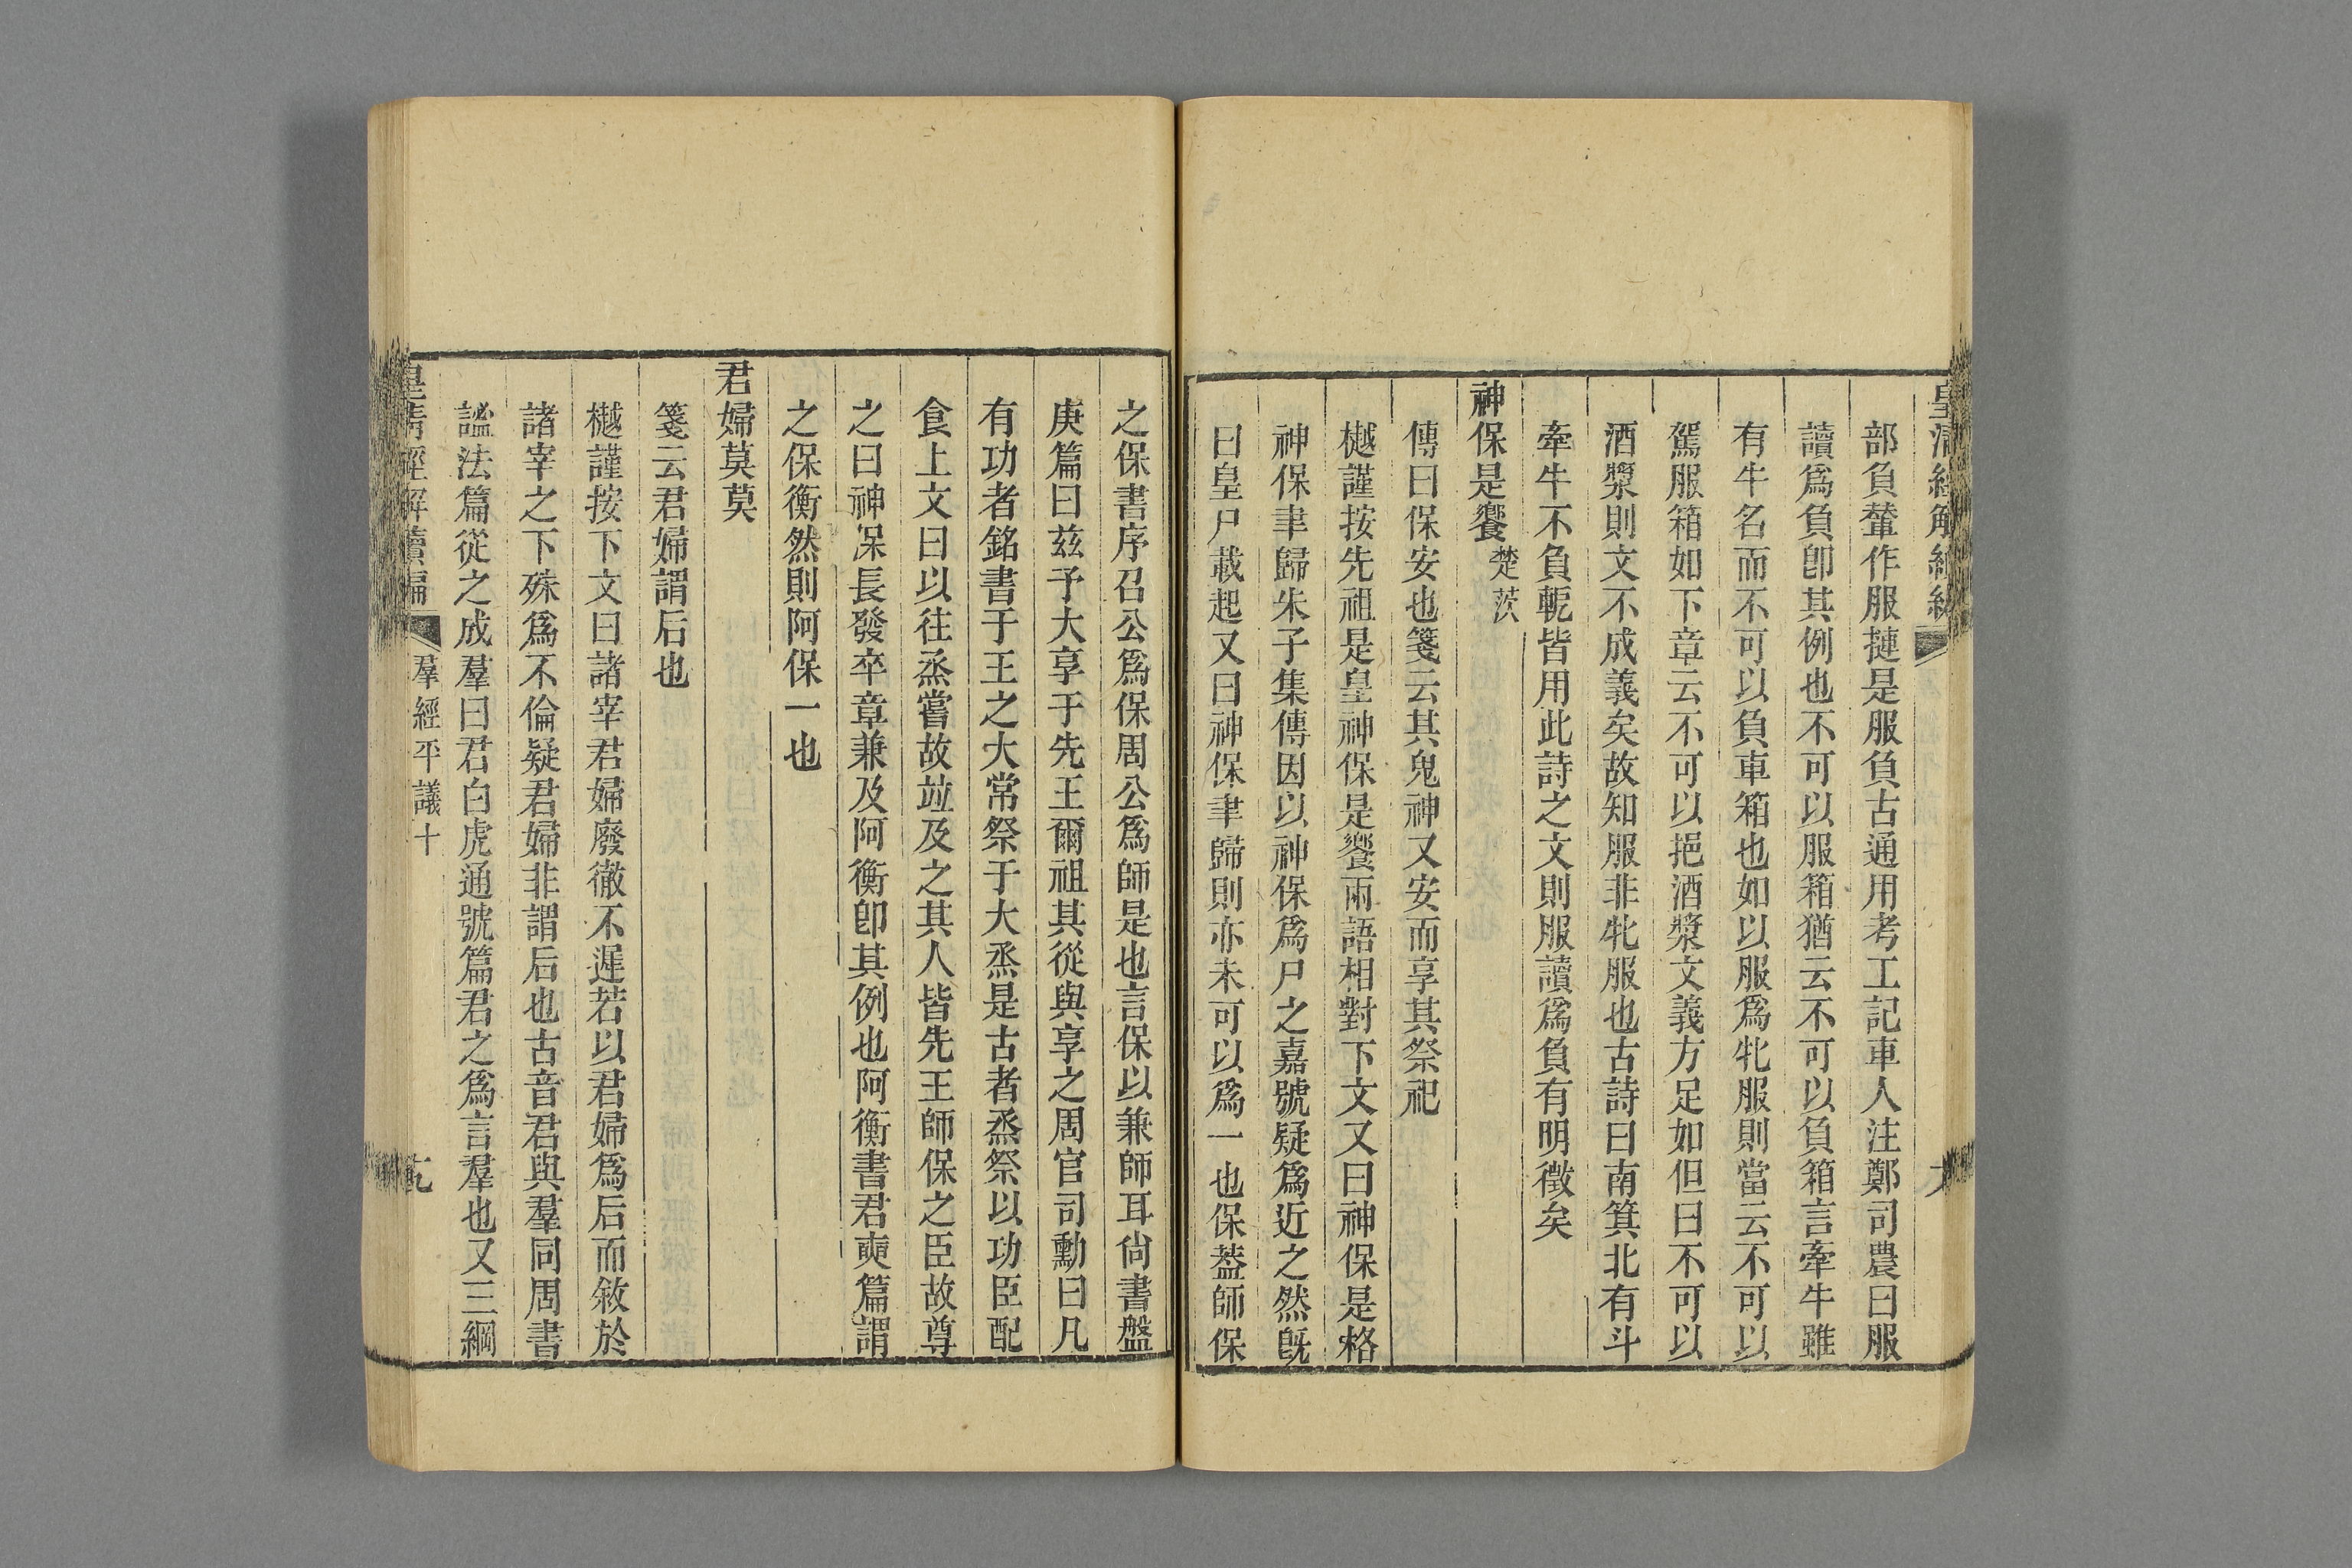 皇清經解續編
部負輂作服揵是服負古通用考工記車人注鄭司農曰服
讀爲負卽其例也不可以服箱猶云不可以負箱言牽牛雖
有牛名而不可以負車箱也如以服爲牝服則當云不可以
駕服箱如下章云不可以挹酒漿文義方足如但曰不可以
酒漿則文不成義矣故知服非牝服也古詩曰南箕北有斗
牽牛不負軛皆用此詩之文則服讀爲負有明徵矣
神保是饗楚茨
傳曰保安也箋云其鬼神又安而享其祭祀
樾謹按先祖是皇神保是饗兩語相對下文又曰神保是格
神保聿歸朱子集傳因以神保爲尸之嘉號疑爲近之然旣
曰皇尸載起又曰神保聿歸則亦未可以爲一也保葢師保
之保書序召公爲保周公爲師是也言保以兼師耳尙書盤
庚篇曰玆予大享于先王爾祖其從與享之周官司勳曰凡
有功者銘書于王之大常祭于大烝是古者烝祭以功臣配
食上文曰以往烝嘗故竝及之其人皆先王師保之臣故尊
之曰神保長發卒章兼及阿衡卽其例也阿衡書君奭篇謂
之保衡然則阿保一也
君婦莫莫
箋云君婦謂后也
樾謹按下文曰諸宰君婦廢徹不遲若以君婦爲后而敘於
諸宰之下殊爲不倫疑君婦非謂后也古音君與羣同周書
謚法篇從之成羣曰君白虎通號篇君之爲言羣也又三綱
皇淸經解續編 羣經平議十